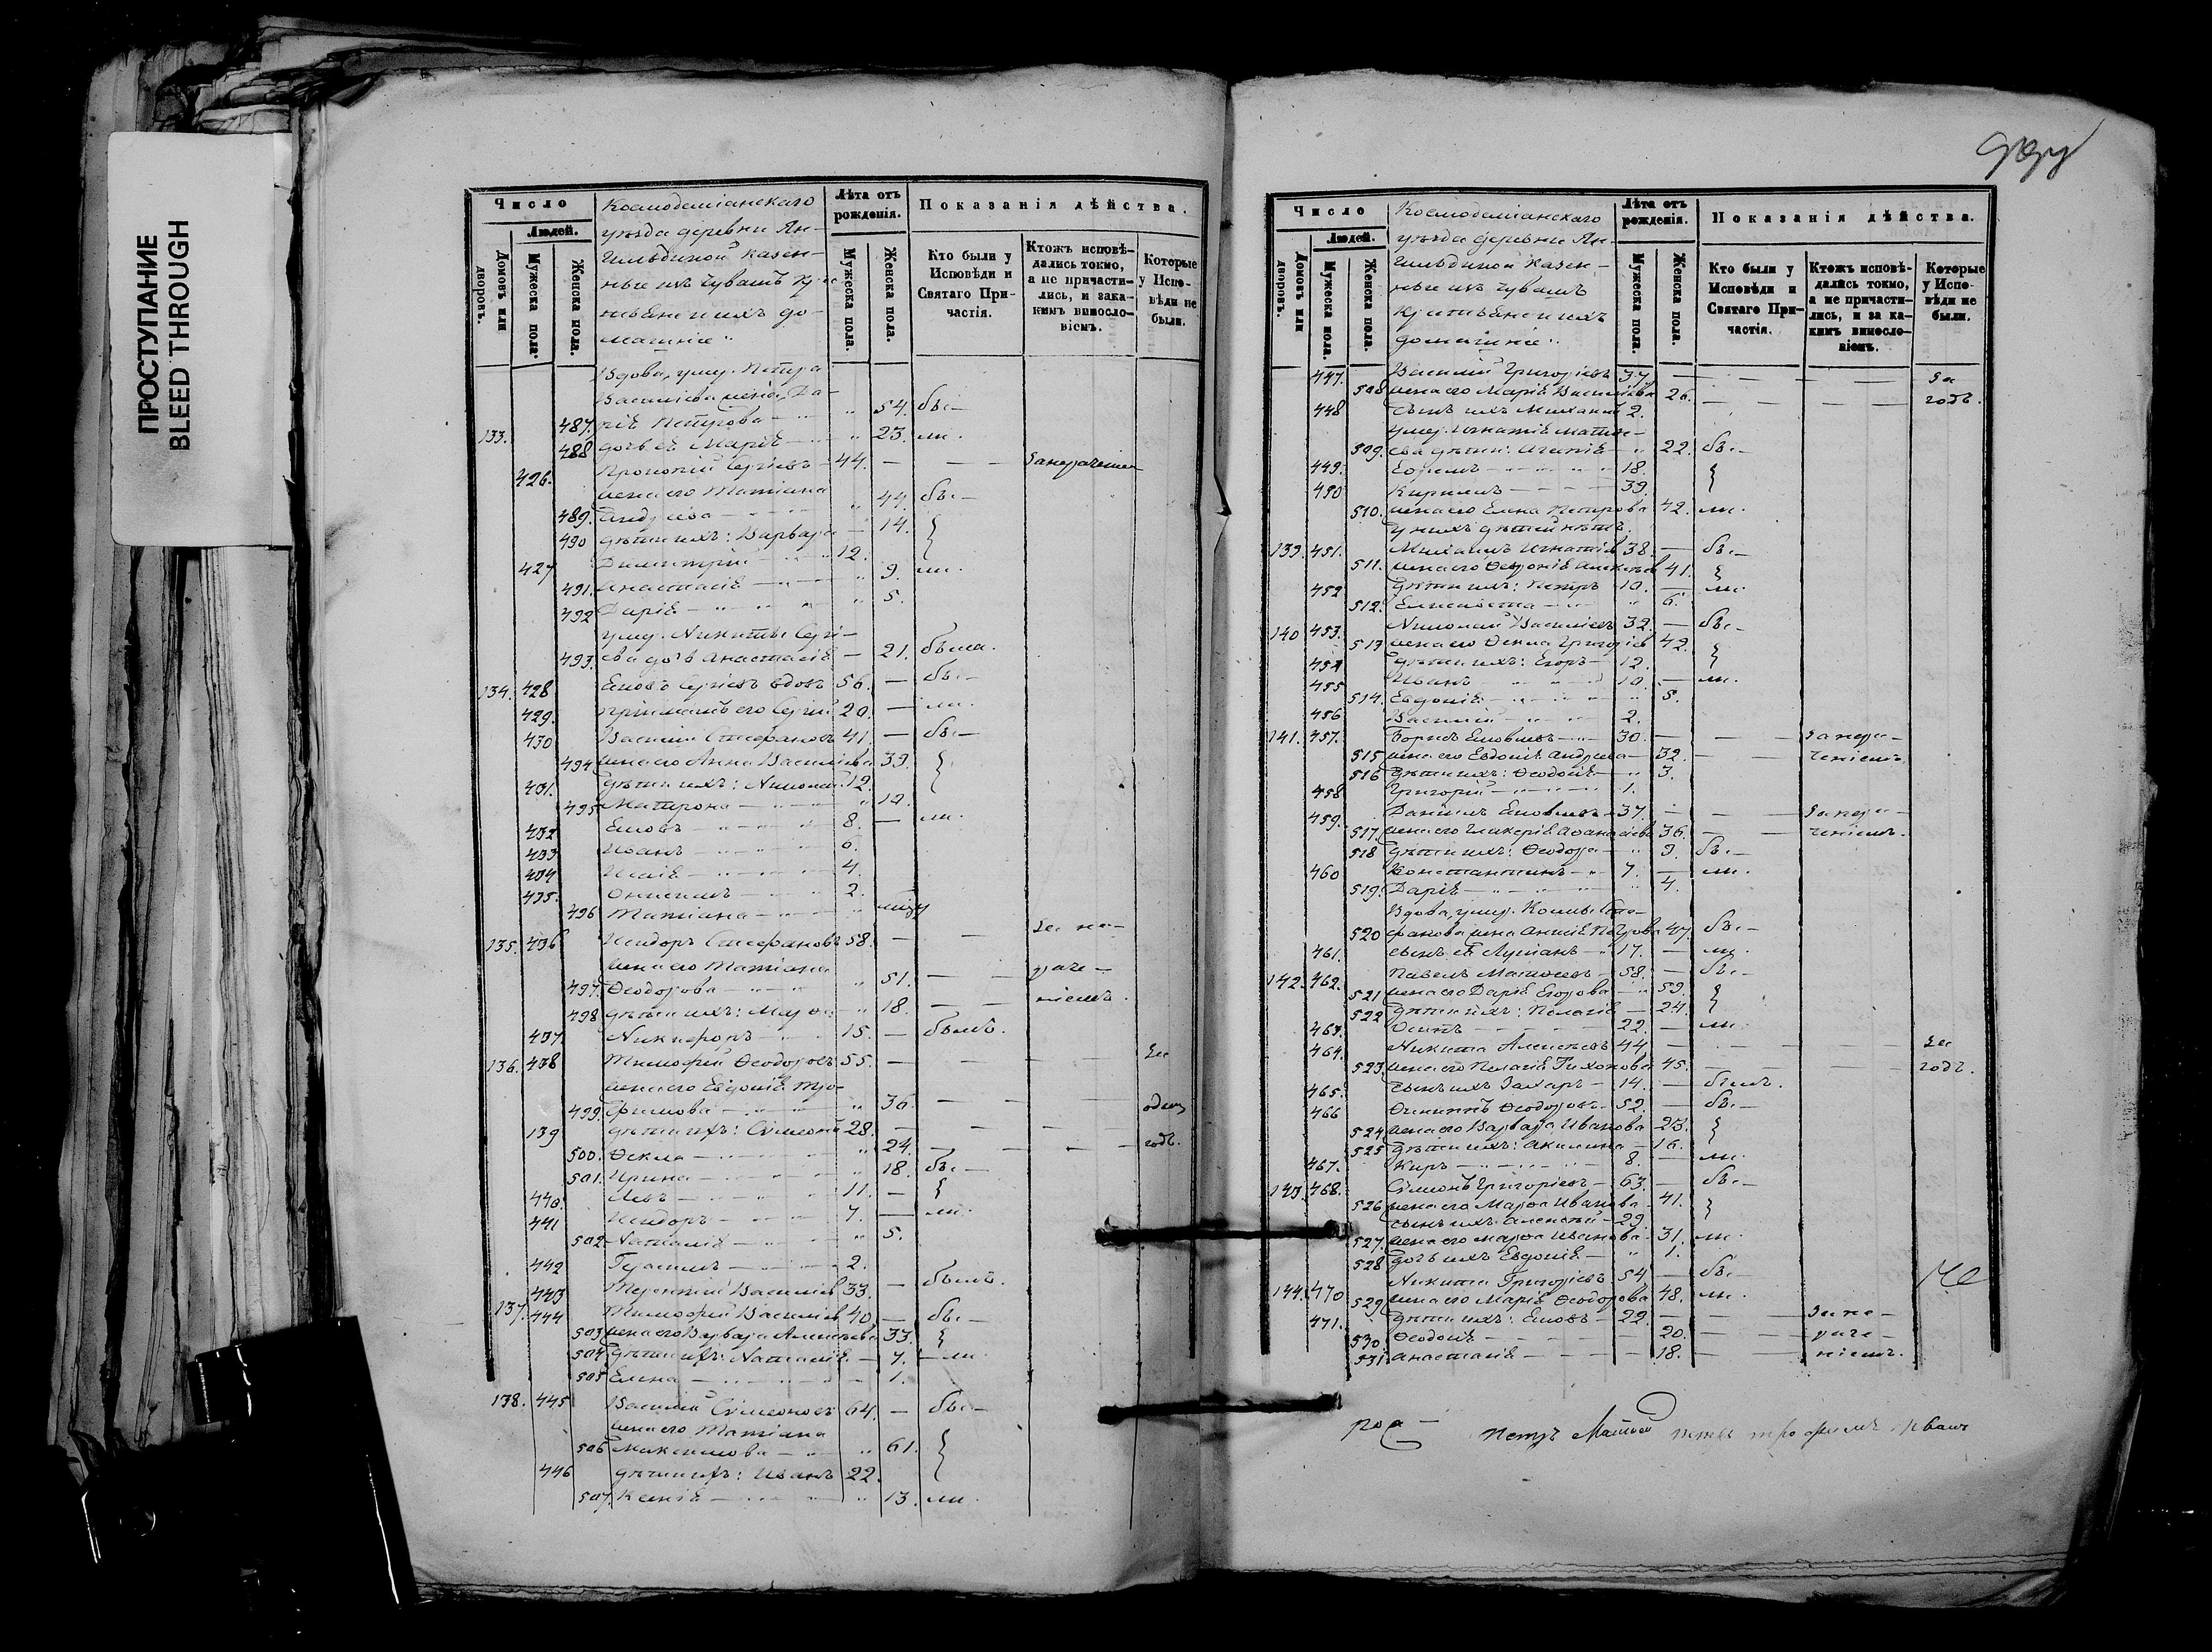 ПРОСТУПАНИЕ
BLEED THROUGH
Число
Людей.
Домовъ или дворовъ.
Мужеска пола.
Женска пола.
Козмодеміанскаго
уѣзда деревни Ян-
гильдиной казен-
ные изъ чувашъ кре-
стьяне и ихъ до-
машніе:
Лѣта отъ рожденія.
Мужеска пола.
Женска пола.
Показанія дѣйства.
Кто были у Исповѣди и Святаго Причастія.
Ктожъ исповѣдались токмо, а не причастились, и за какимъ винословіемъ.
Которые у Исповѣди не были.
Вдова, умер. Петра
Василіева жена, Да-
133. 487. рія Петрова 54. бы-
488 дочь ея Марія 23. ли.
426. Прокопій Сергіевъ 44. — —
жена его Татіана
489. Андреева 44. бы-
490 дѣти ихъ: Варвара 14.
427 Димитрій 12.
491. Анастасія 9. ли.
492 Дарія 5.
умер. Никиты Сергі-
493. ева дочь Анастасія — 21. была.
134. 428 Іовъ Сергіевъ вдовъ 56. — бы-
429. его Сергій 20. — ли.
430 Василій Стефановъ 41. — бы-
494 жена его Анна Василіева 39.
431. дѣти ихъ: Николай 12.
495 Матрона 10.
432 Іовъ 8. — ли.
433 Иванъ 6.
434 Исаія 4.
435. Онисимъ 2.
496 Татіана
135. 436 Исидоръ Стефановъ 58. — — За не-
жена его Татіана
497. Ѳеодорова 51. — — раче-
498 дѣти ихъ: Марѳа 18. — — ніемъ.
437. Никифоръ 15. — былъ.
136. 438 Тимофей Ѳеодоровъ 55. — — — За
жена его Евдокія Тро-
499. фимова 36. — — — один
139 дѣти ихъ: Сѵмеонъ 28. — — —
500. Ѳекла 24. — — — годъ.
501. Ирина 18. бы-
440. Левъ 11. —
441 Исидоръ 7. — ли.
502 Наталія 5.
442 Герасимъ 2.
443 Терентій Василіевъ 33. — былъ.
137. 444 Тимофей Василіевъ 40. — бы-
503 жена его Варвара Алексѣева 33.
504 дѣти ихъ: Наталія — 7. — ли.
505 Елена — 1.
138. 445 Василій Сѵмеоновъ 64. — бы-
жена его Татіана
506 Максимова 61.
446 дѣти ихъ: Иванъ 22.
507. Ксенія 13. ли.
Число
Людей.
Домовъ или дворовъ.
Мужеска пола.
Женска пола.
Козмодеміанскаго
уѣзда деревни Ян-
гильдиной казен-
ные изъ чувашъ
крестьяне и ихъ
домашніе:
Лѣта отъ рожденія.
Мужеска пола.
Женска пола.
Показанія дѣйства.
Кто были у Исповѣди и Святаго Причастія.
Ктожъ исповѣдались токмо, а не причастились, и за какимъ винословіемъ.
Которые у Исповѣди не были.
447. Василій Григорьевъ 37 — — — За
508 жена его Марія Василіева 26. — — — годъ.
448 сынъ ихъ Михаилъ 2.
умер. Игнатія Матѳе-
509. ева дѣти: Агапія 22. бы-
449. Ефремъ 18.
450 Кириллъ 39.
510. жена его Елена Петрова 42. ли.
у нихъ дѣтей нѣтъ.
139. 451. Михаилъ Игнатіевъ 38. — бы-
511. жена его Ѳевронія Алексѣева 41.
452 дѣти ихъ: Петръ 10. — ли.
512. Елисавета 6.
140 453. Николай Василіевъ 32. — бы-
513 жена его Ѳекла Григорьева 42.
454 дѣти ихъ: Егоръ 12.
455 Иванъ 10. — ли.
514. Евдокія 5.
456 Василій 2.
141. 457. Борисъ Іовлевъ 30. — — За нера-
515 жена его Евдокія Андреева 32. — — ченіемъ.
516 дѣти ихъ: Ѳеодосія 3.
458 Григорій 1.
459. Даніилъ Іовлевъ 37. — — За нера-
517. жена его Гликерія Аѳанасіева 36. — — ченіемъ.
518 дѣти ихъ: Ѳеодора 9. бы-
460 Константинъ 7. — ли.
519. Дарія 4.
Вдова, умер. Козмы Сте-
520 фанова жена Анисія Петрова 47. бы-
461. сынъ ея Лукіанъ 17. — ли.
142. 462. Павелъ Матѳеевъ 58. — бы-
521 жена его Дарія Егорова 59.
522 дѣти ихъ: Пелагія 24.
463. Осипъ 22. — ли.
464. Никита Алексѣевъ 44 — — — За
523. жена его Пелагія Тихонова 45. — — — годъ.
465. сынъ ихъ Захаръ 14. — былъ.
466 Филиппъ Ѳеодоровъ 52. — бы-
524 жена его Варвара Иванова 23.
525 дѣти ихъ: Акилина 16.
467. Киръ 8. — ли.
143. 468. Сѵмеонъ Григорьевъ 63. — бы-
526 жена его Марѳа Иванова 41.
сынъ ихъ Алексѣй 29.
527. жена его Марѳа Иванова 31. ли.
528 дочь ихъ Евдокія 1.
144. 470 Никита Григорьевъ 54 — бы-
529 жена его Марія Ѳеодорова 48. ли.
471. дѣти ихъ: Іовъ 22. — — За не-
530 Ѳеодосія 20. — — раче-
531 Анастасія 18. — — ніемъ.
Петръ